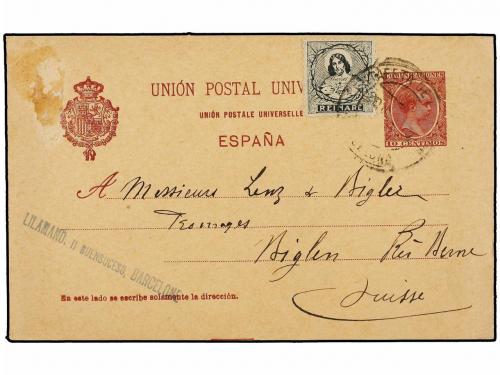 UNIÓN POSTAL UNIV
UNION POSTALE UNIVERSELLE
ESPAÑA
REFJARE
COMUNICACIONES
10 CENTIMOS
A Messieurs Lenz & Bigler
Fromages
Biglen Près Berne
Suisse
LILAMAND, 11 BUENSUCESO, BARCELONE
En este lado se escribe solamente la dirección.